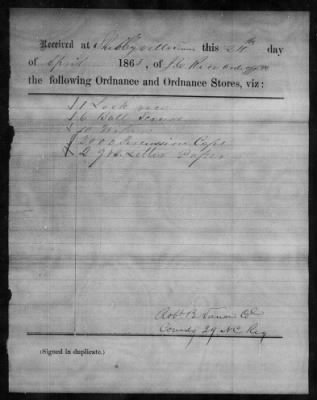 Received at Shelbyville this 24th day
of April 1863, of
the following Ordnance and Ordnance Stores, viz:
1 Lock vice
6 Ball Screws
10
2000 Percussion Caps
2 Letter Paper
Robt B Vance Col
Comdg 29 NC Reg
(Signed in duplicate.)